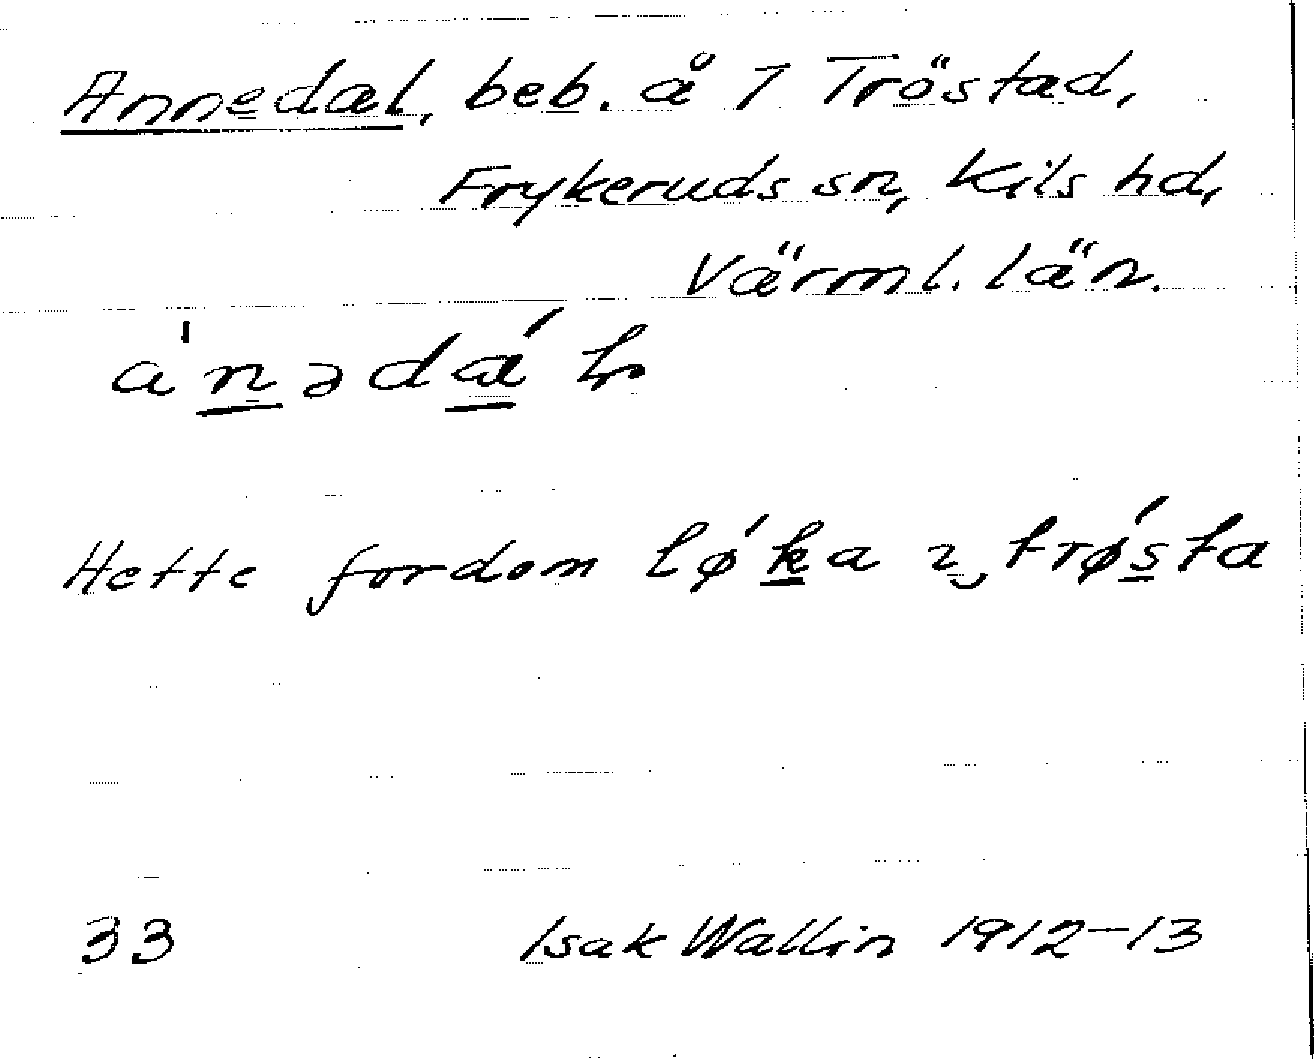 Annedal, beb. å 7 Tröstad,
Frykeruds sn, Kils hd,
Värml. län.
a'nədá
Hette fordom lǿka trǿsta
33 Isak Wallin 1912-13